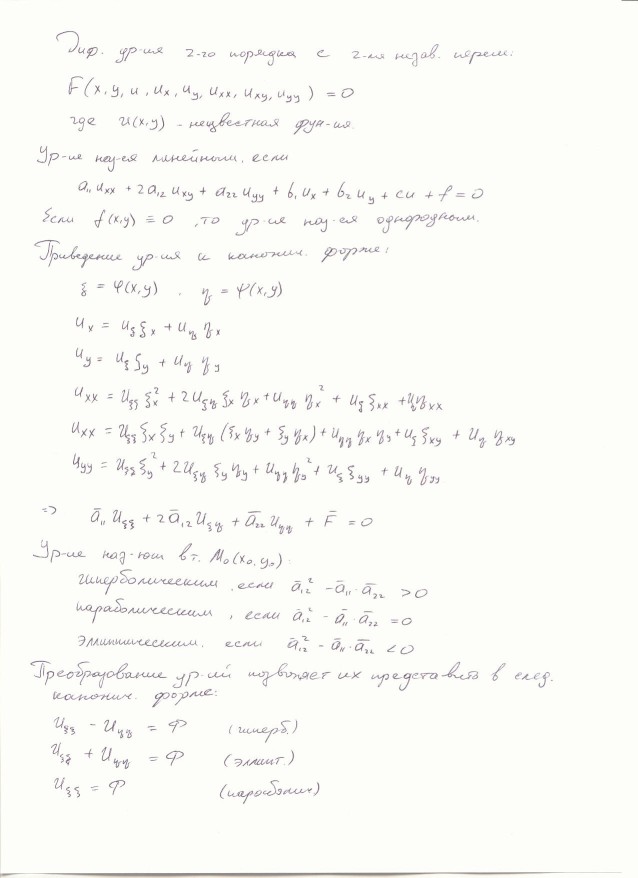 Диф. ур-ия 2-го порядка с 2-мя незав. перем:
F(x, y, u, uₓ, u_y, uₓₓ, uₓy, u_yy) = 0
где u(x,y) - неизвестная фун-ия.
Ур-ие наз-ся линейным, если
a₁₁ uₓₓ + 2a₁₂ uₓy + a₂₂ u_yy + b₁ uₓ + b₂ u_y + cu + f = 0
Если f(x,y) ≡ 0, то ур-ие наз-ся однородным.
Приведение ур-ия к канонич. форме:
ξ = φ(x,y), η = ψ(x,y)
u_x = u_ξ ξ_x + u_η η_x
u_y = u_ξ ξ_y + u_η η_y
u_xx = u_ξξ ξ_x² + 2u_ξη ξ_x η_x + u_ηη η_x² + u_ξ ξ_xx + u_η η_xx
u_xx = u_ξξ ξ_x ξ_y + u_ξη (ξ_x η_y + ξ_y η_x) + u_ηη η_x η_y + u_ξ ξ_xy + u_η η_xy
u_yy = u_ξξ ξ_y² + 2u_ξη ξ_y η_y + u_ηη η_y² + u_ξ ξ_yy + u_η η_yy
=> ā₁₁ u_ξξ + 2ā₁₂ u_ξη + ā₂₂ u_ηη + F̄ = 0
Ур-ие наз-ют в т. M₀(x₀, y₀):
гиперболическим, если ā₁₂² - ā₁₁·ā₂₂ > 0
параболическим, если ā₁₂² - ā₁₁·ā₂₂ = 0
эллиптическим, если ā₁₂² - ā₁₁·ā₂₂ < 0
Преобразование ур-ий позволяет их представить в след.
канонич. форме:
u_ξξ - u_ηη = Φ (гиперб.)
u_ξξ + u_ηη = Φ (эллипт.)
u_ξξ = Φ (параболич)